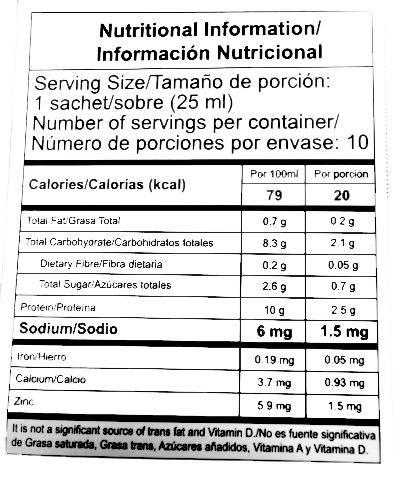 Nutritional Information/
Información Nutricional
Serving Size/Tamaño de porción:
1 sachet/sobre (25 ml)
Number of servings per container/
Número de porciones por envase: 10
Calories/Calorías (kcal) Por 100ml Por porción
79 20
Total Fat/Grasa Total 0.7 g 0.2 g
Total Carbohydrate/Carbohidratos totales 8.3 g 2.1 g
Dietary Fibre/Fibra dietaria 0.2 g 0.05 g
Total Sugar/Azúcares totales 2.6 g 0.7 g
Protein/Proteína 10 g 2.5 g
Sodium/Sodio 6 mg 1.5 mg
Iron/Hierro 0.19 mg 0.05 mg
Calcium/Calcio 3.7 mg 0.93 mg
Zinc 5.9 mg 1.5 mg
It is not a significant source of trans fat and Vitamin D./No es fuente significativa
de Grasa saturada, Grasa trans, Azúcares añadidos, Vitamina A y Vitamina D.